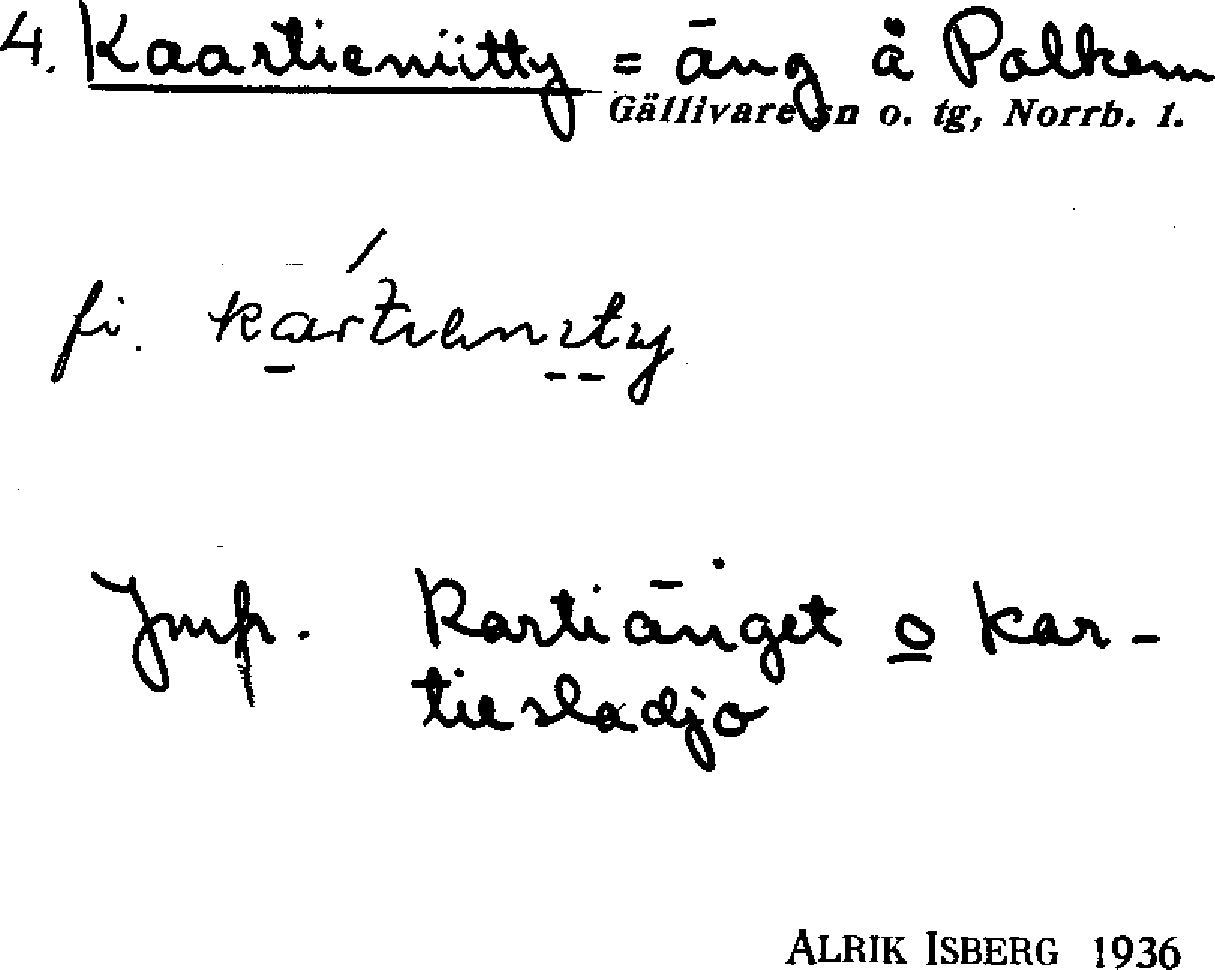 4. Kaartieniitty = äng å Palkem
Gällivare sn o. tg, Norrb. l.
fi. kartienity
Jmfr. Kartiänget o Kar-
tiesladjo
ALRIK ISBERG 1936